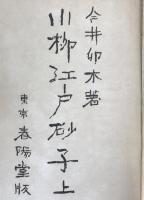 今井卯木著
川柳江戸砂子上
東京 春陽堂版